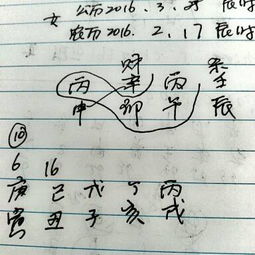 女 公历2016.3.25 辰时
农历2016.2.17 辰时
财
丙 辛 丙 壬
申 卯 午 辰
⑩
6 16
庚 己 戊 丁 丙
寅 丑 子 亥 戌